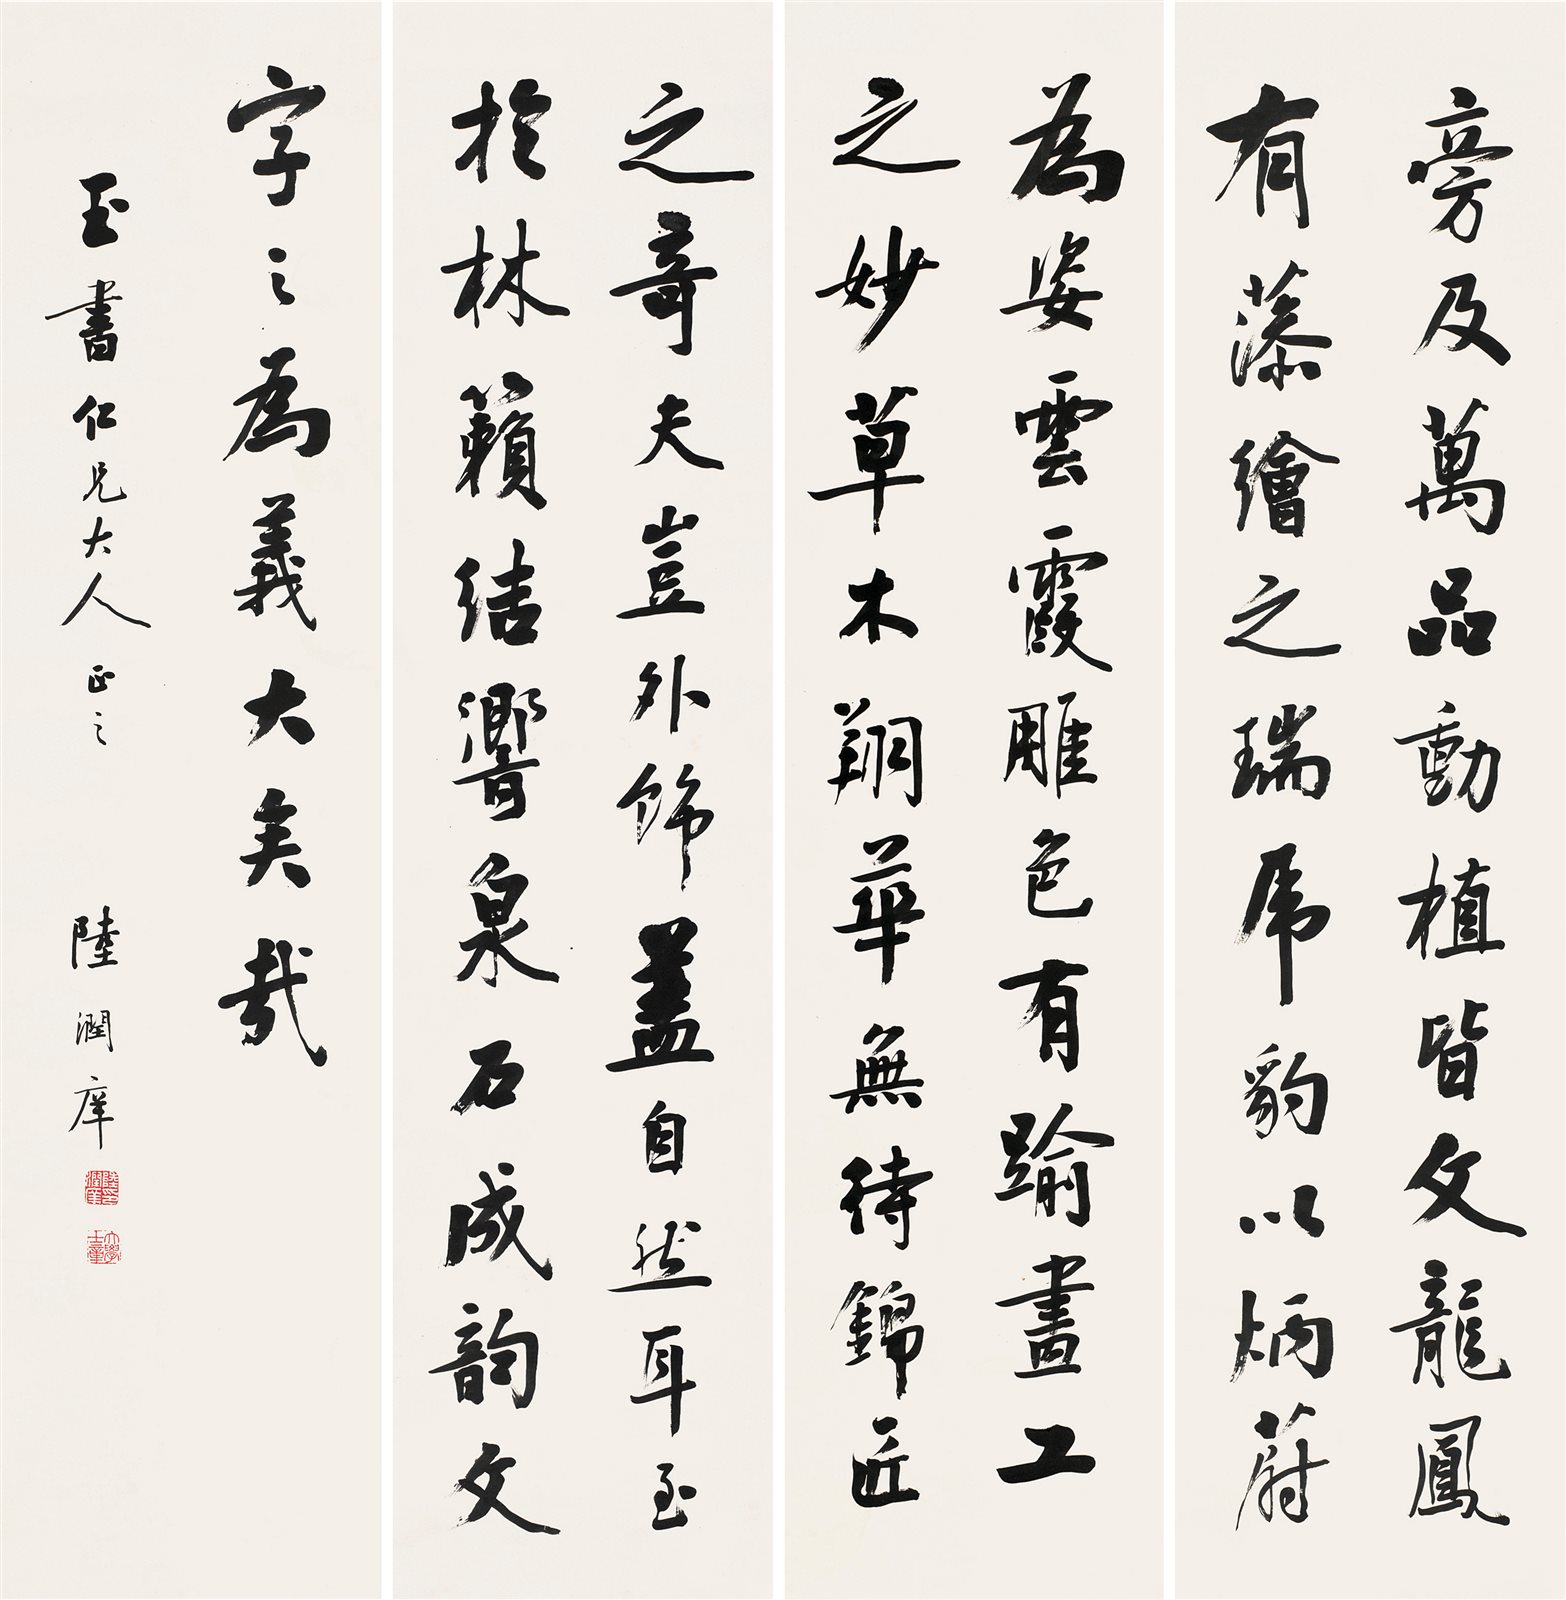 旁及萬品動植皆文龍鳳
有藻繪之瑞虎豹以炳蔚
為姿雲霞雕色有踰畫工
之妙草木翔華無待錦匠
之奇夫豈外飾蓋自然耳至
於林籟結響泉石成韵文
字之為義大矣哉
玉書仁兄大人正之
陸潤庠
陸潤庠印
大學士章